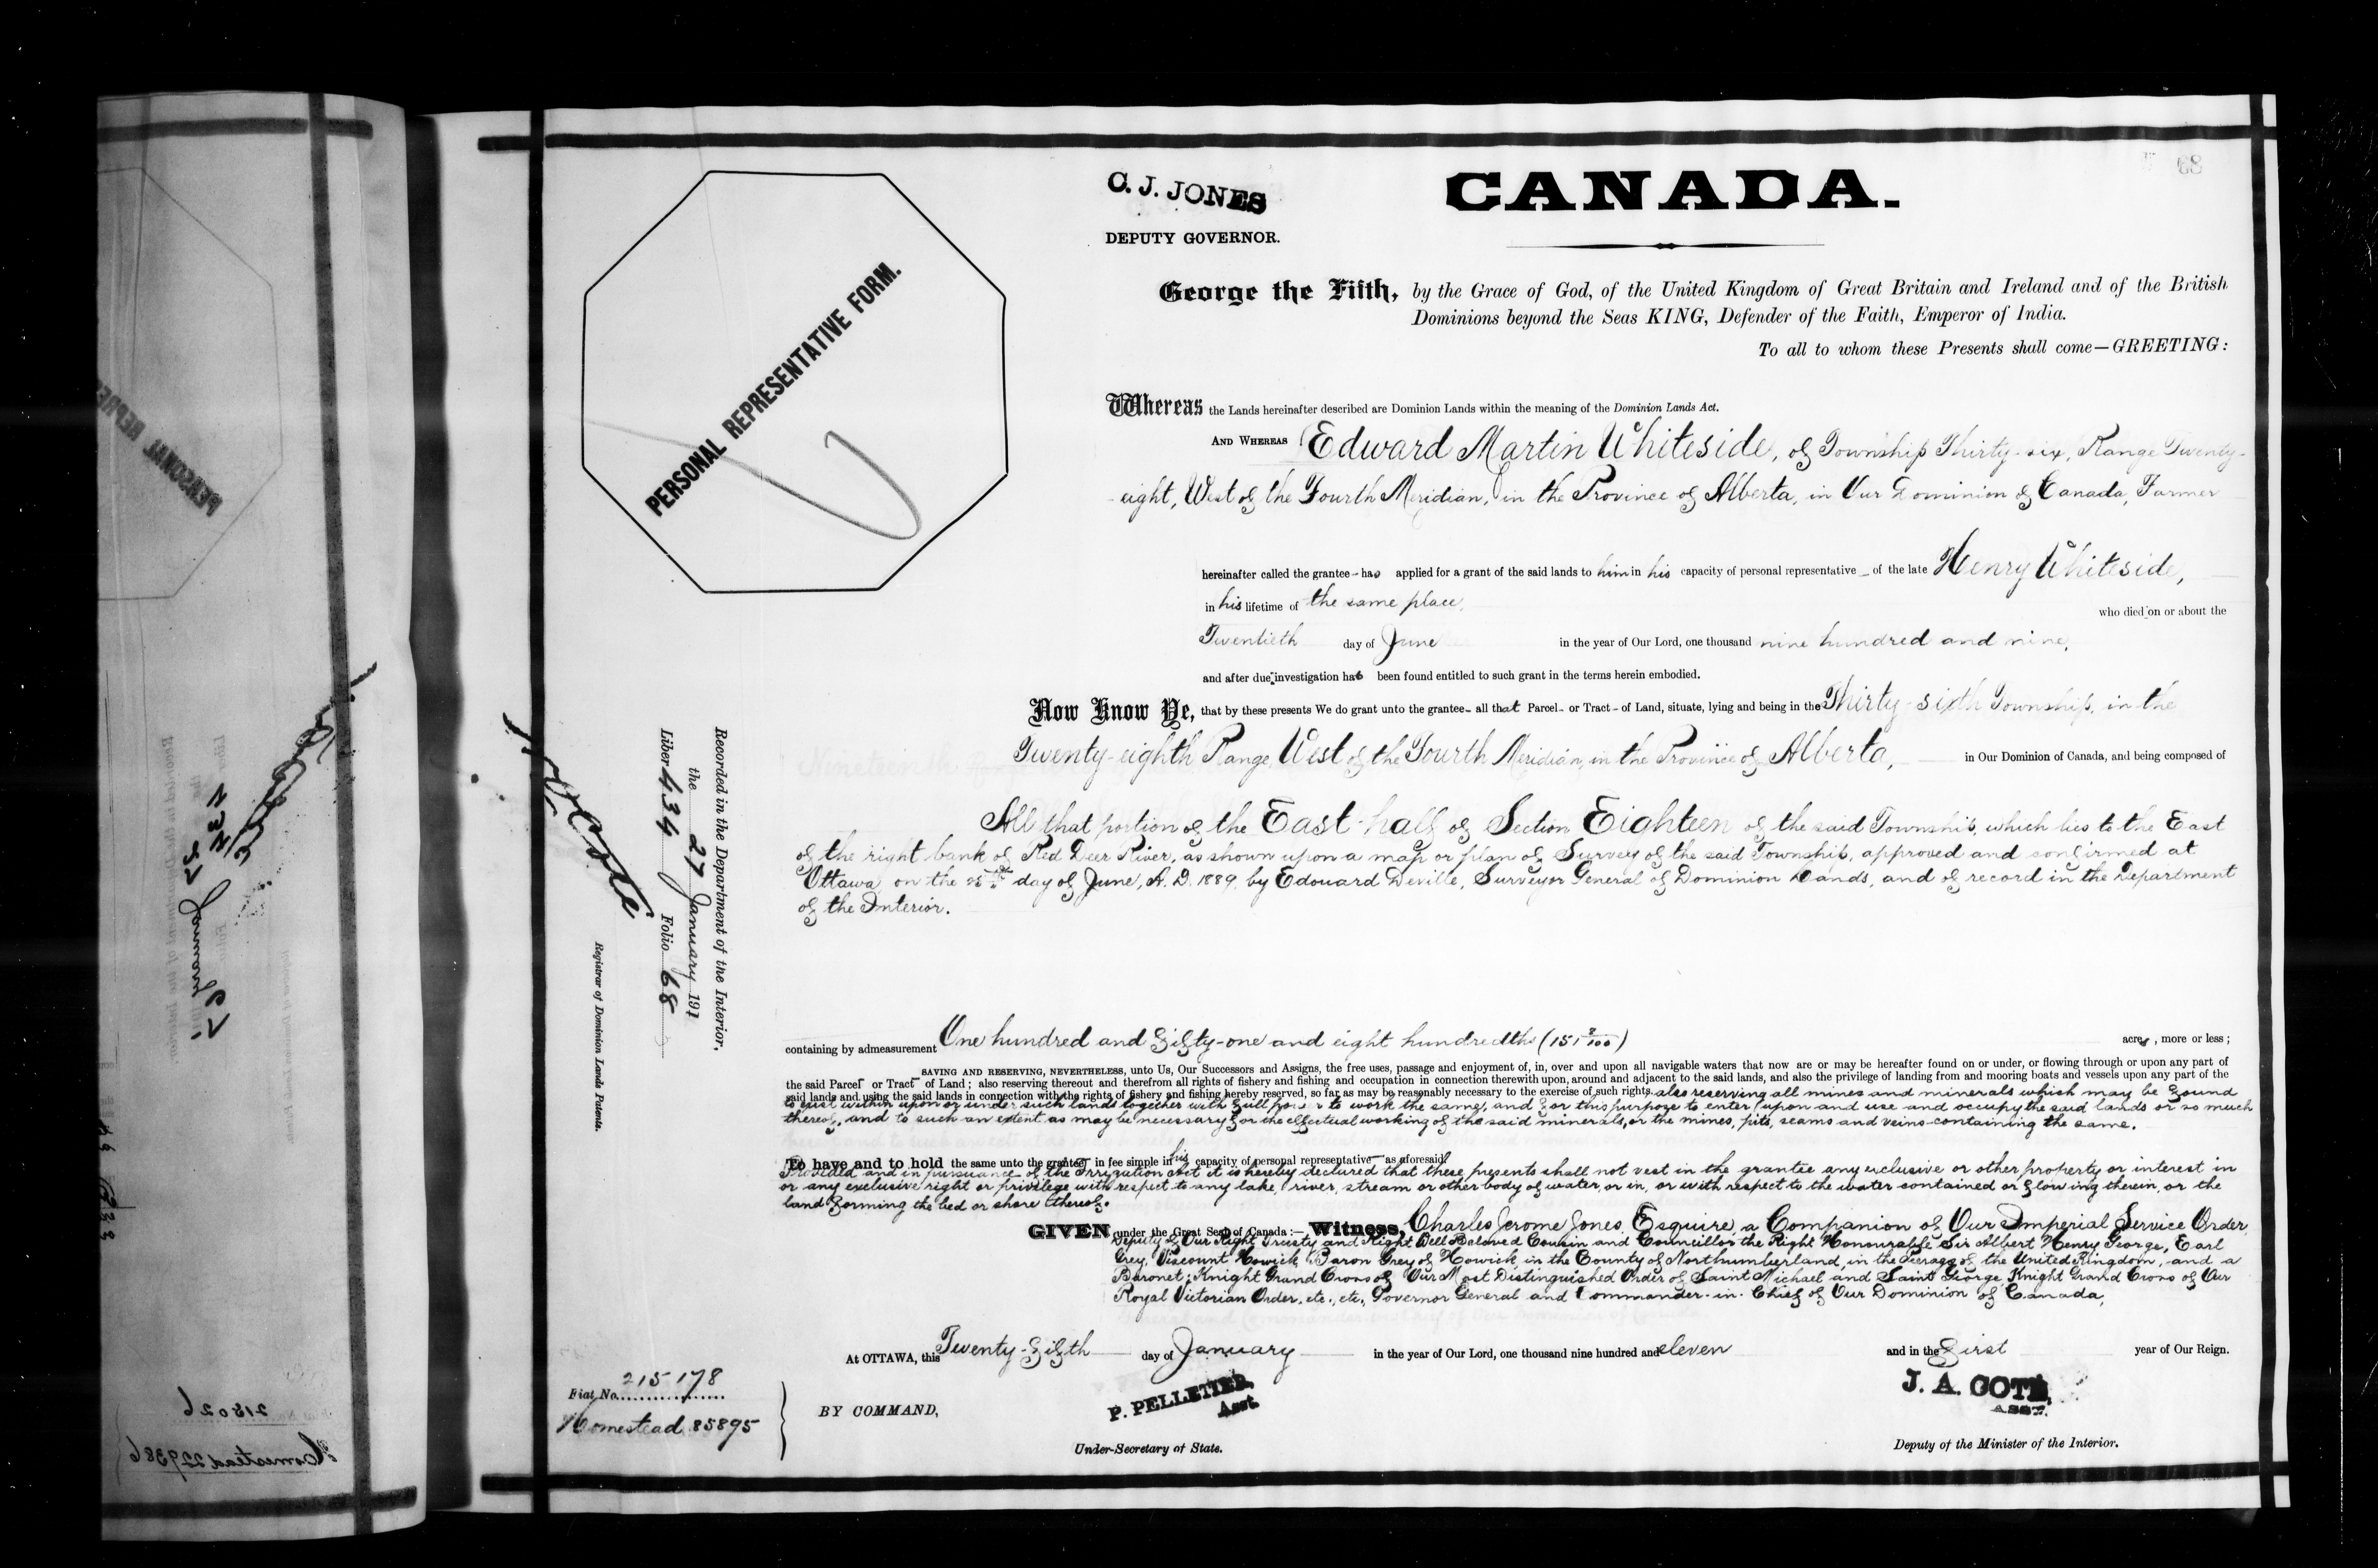 C. J. JONES
DEPUTY GOVERNOR.
CANADA.
68
PERSONAL REPRESENTATIVE FORM.
George the Fifth, by the Grace of God, of the United Kingdom of Great Britain and Ireland and of the British
Dominions beyond the Seas KING, Defender of the Faith, Emperor of India.
To all to whom these Presents shall come—GREETING:
Whereas the Lands hereinafter described are Dominion Lands within the meaning of the Dominion Lands Act.
AND WHEREAS Edward Martin Whiteside, of Township Thirty-six, Range Twenty-
eight, West of the Fourth Meridian, in the Province of Alberta, in Our Dominion of Canada, Farmer
hereinafter called the grantee has applied for a grant of the said lands to him in his capacity of personal representative of the late Henry Whiteside,
in his lifetime of the same place,
who died on or about the
Twentieth day of June in the year of Our Lord, one thousand nine hundred and nine,
and after due investigation has been found entitled to such grant in the terms herein embodied.
Now Know Ye, that by these presents We do grant unto the grantee all that Parcel or Tract of Land, situate, lying and being in the Thirty-sixth Township, in the
Twenty-eighth Range, West of the Fourth Meridian, in the Province of Alberta, in Our Dominion of Canada, and being composed of
All that portion of the East-half of Section Eighteen of the said Township, which lies to the East
of the right bank of Red Deer River, as shown upon a map or plan of Survey of the said Township, approved and confirmed at
Ottawa, on the day of June, A. D. 1889, by Edouard Deville, Surveyor General of Dominion Lands, and of record in the Department
of the Interior.
containing by admeasurement One hundred and fifty-one and eight hundredths (151 8/100) acres, more or less;
SAVING AND RESERVING, NEVERTHELESS, unto Us, Our Successors and Assigns, the free uses, passage and enjoyment of, in, over and upon all navigable waters that now are or may be hereafter found on or under, or flowing through or upon any part of
the said Parcel or Tract of Land; also reserving thereout and therefrom all rights of fishery and fishing and occupation in connection therewith upon, around and adjacent to the said lands, and also the privilege of landing from and mooring boats and vessels upon any part of the
said lands and using the said lands in connection with the rights of fishery and fishing hereby reserved, so far as may be reasonably necessary to the exercise of such rights also reserving all mines and minerals which may be found
to exist within upon or under such lands together with full power to work the same, and for this purpose to enter upon and use and occupy the said lands or so much
thereof, and to such an extent as may be necessary for the effectual working of the said minerals, or the mines, pits, seams and veins containing the same.
To have and to hold the same unto the grantee in fee simple in his capacity of personal representative as aforesaid
Provided and in pursuance of the Irrigation Act it is hereby declared that these presents shall not vest in the grantee any exclusive or other property or interest in
or any exclusive right or privilege with respect to any lake, river, stream or other body of water, or in, or with respect to the water contained or flowing therein, or the
land forming the bed or shore thereof.
GIVEN under the Great Seal of Canada:— Witness, Charles Jerome Jones, Esquire, a Companion of Our Imperial Service Order,
Deputy of Our Right Trusty and Right Well Beloved Cousin and Councillor the Right Honourable Sir Albert Henry George, Earl
Grey, Viscount Howick, Baron Grey of Howick, in the County of Northumberland, in the Peerage of the United Kingdom, and a
Baronet; Knight Grand Cross of Our Most Distinguished Order of Saint Michael and Saint George, Knight Grand Cross of Our
Royal Victorian Order, etc., etc., Governor General and Commander-in-Chief of Our Dominion of Canada,
At OTTAWA, this Twenty-fifth day of January in the year of Our Lord, one thousand nine hundred and eleven and in the first year of Our Reign.
BY COMMAND,
P. PELLETIER,
Asst.
Under-Secretary of State.
J. A. COTE,
ASST.
Deputy of the Minister of the Interior.
Fiat No. 215178
Homestead 85895
Recorded in the Department of the Interior,
the 27 January 1911
Liber 434 Folio 68
Registrar of Dominion Lands Patents.
215026
Homestead 229386